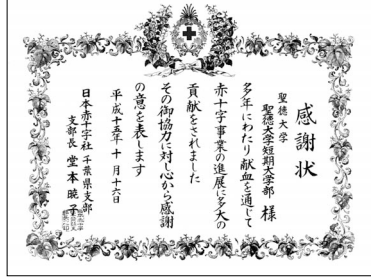 感謝状
聖徳大学
聖徳大学短期大学部 様
多年にわたり献血を通じて
赤十字事業の進展に多大の
貢献をされました
その御協力に対し心から感謝
の意を表します
平成十五年十月十六日
日本赤十字社千葉県支部
支部長 堂本暁子